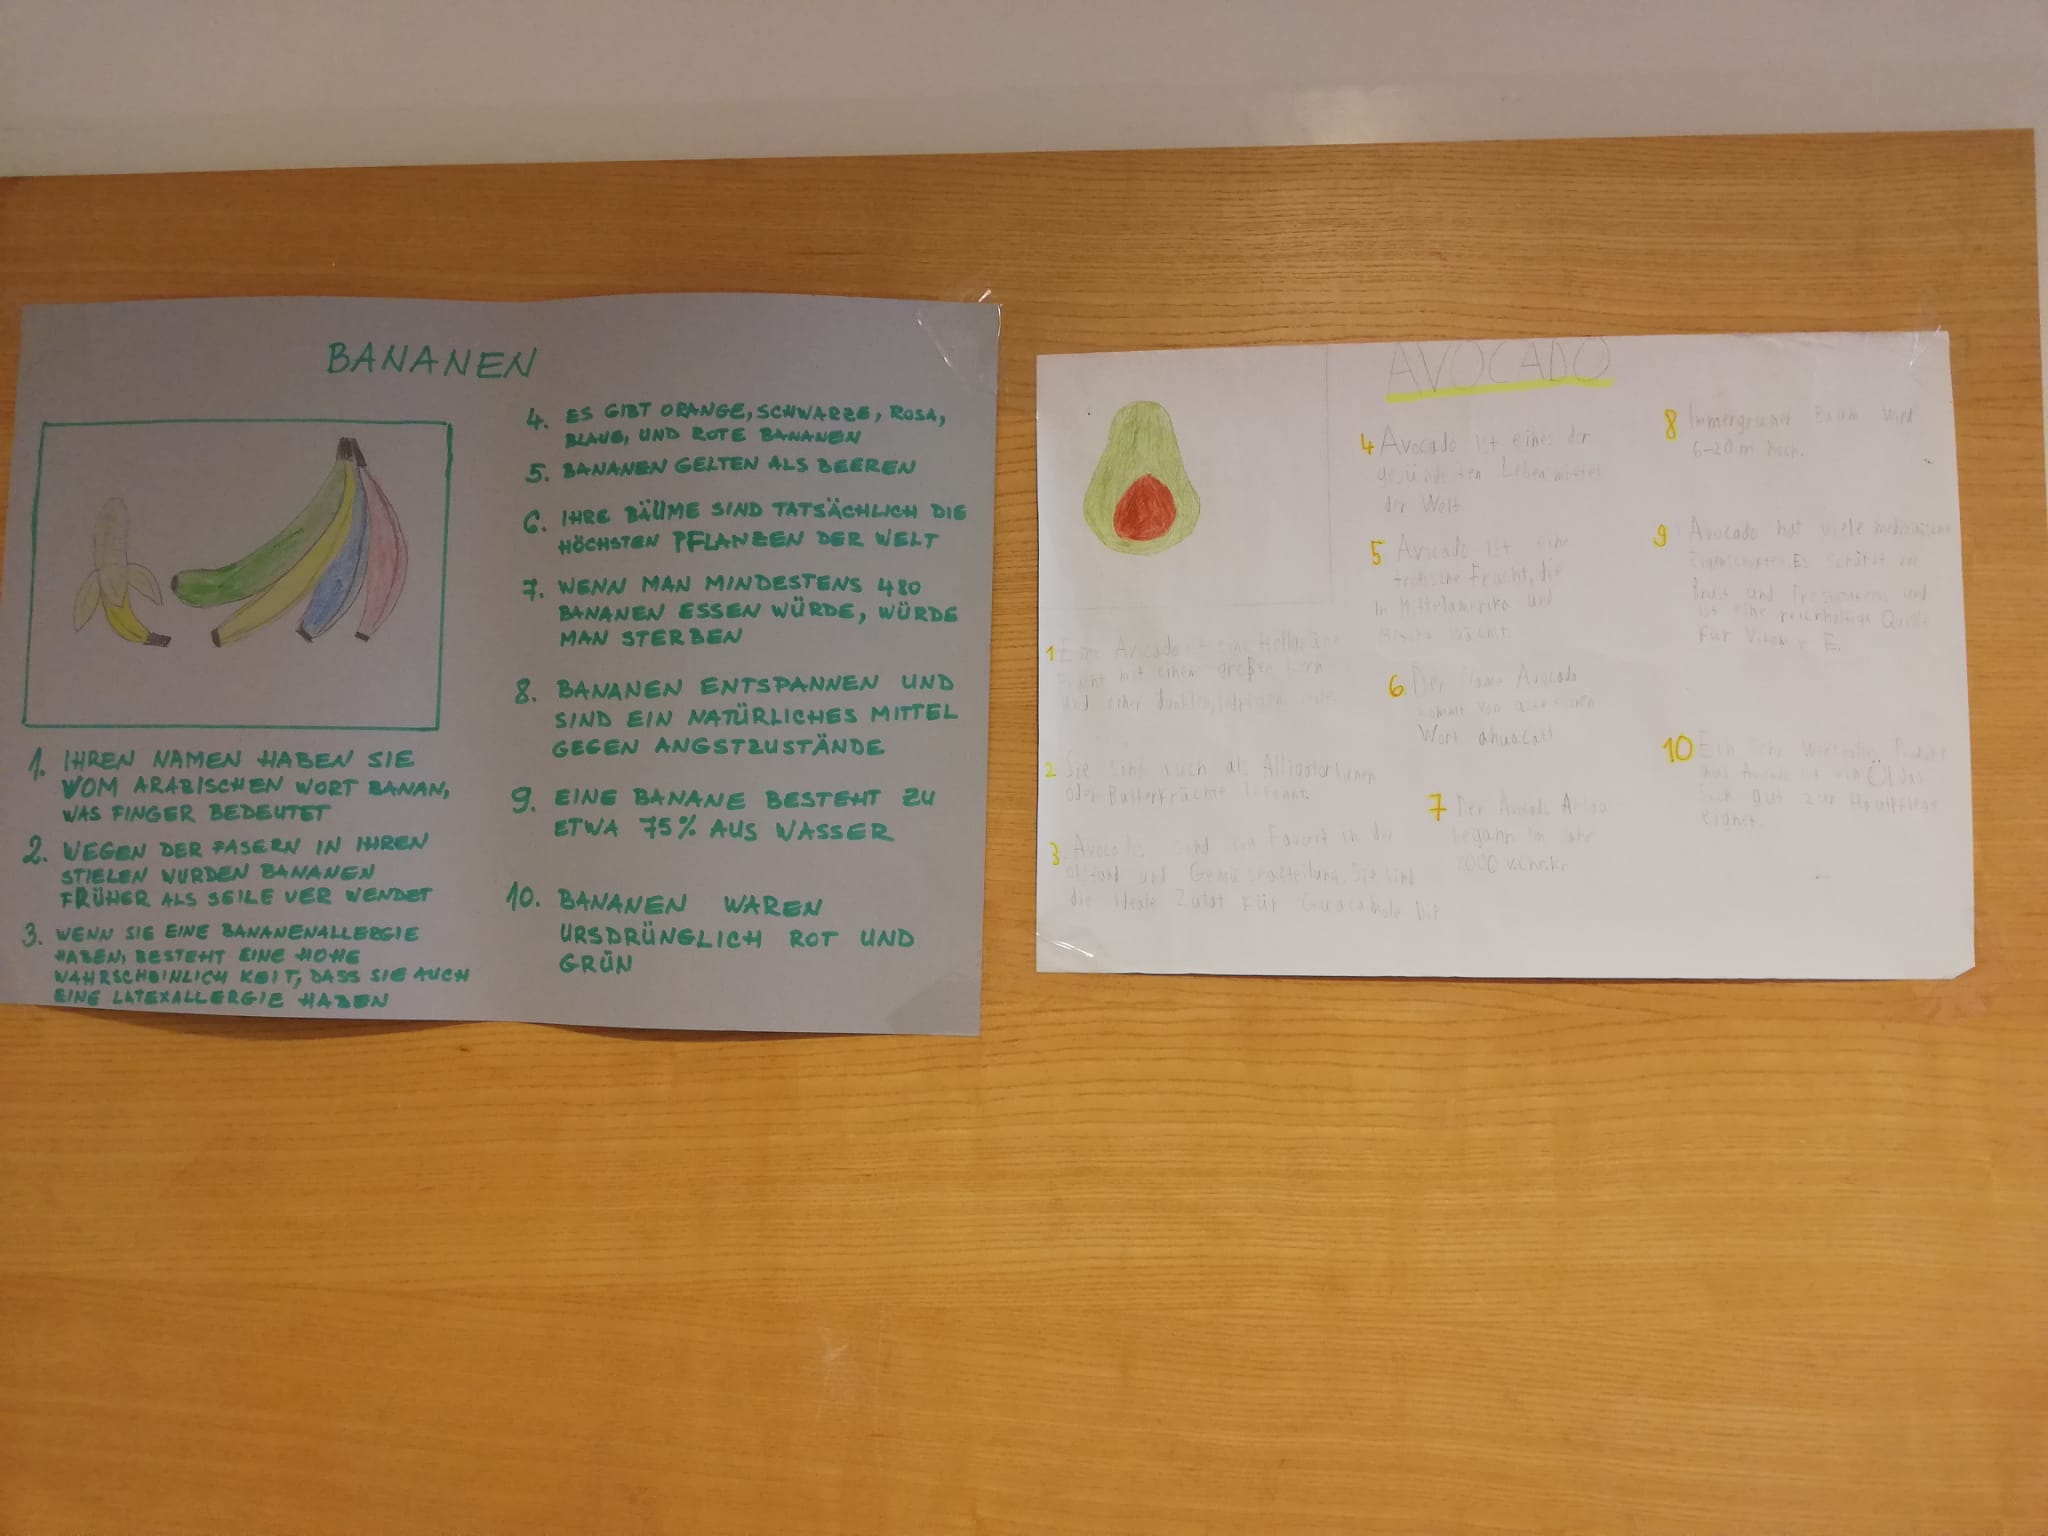 BANANEN
1. IHREN NAMEN HABEN SIE
VOM ARABISCHEN WORT BANAN,
WAS FINGER BEDEUTET
2. WEGEN DER FASERN IN IHREN
STIELEN WURDEN BANANEN
FRÜHER ALS SEILE VER WENDET
3. WENN SIE EINE BANANENALLERGIE
HABEN, BESTEHT EINE HOHE
WAHRSCHEINLICH KEIT, DASS SIE AUCH
EINE LATEXALLERGIE HABEN
4. ES GIBT ORANGE, SCHWARZE, ROSA,
BLAUE, UND ROTE BANANEN
5. BANANEN GELTEN ALS BEEREN
6. IHRE BÄUME SIND TATSÄCHLICH DIE
HÖCHSTEN PFLANZEN DER WELT
7. WENN MAN MINDESTENS 480
BANANEN ESSEN WÜRDE, WÜRDE
MAN STERBEN
8. BANANEN ENTSPANNEN UND
SIND EIN NATÜRLICHES MITTEL
GEGEN ANGSTZUSTÄNDE
9. EINE BANANE BESTEHT ZU
ETWA 75% AUS WASSER
10. BANANEN WAREN
URSDRÜNGLICH ROT UND
GRÜN
AVOCADO
1 Eine Avocado ist eine
Frucht mit einem großen Kern
und einer
2 Sie sind auch als
oder bekannt.
3 Avocados sind ein Favorit in der
und Sie sind
die ideale Zutat Für Dip
4 Avocado ist eines der
der Welt
5 Avocado ist eine
Frucht, die
In Mittelamerika und
6 Der Name Avocado
kommt von
Wort ahuacatl
7 Der Avocado
begann im Jahr
8 Immergrüner Baum wird
6-20m hoch.
9 Avocado hat viele
Es schützt vor
Brust und und
ist eine reichhaltige Quelle
Für Vitamin E.
10 Ein sehr Produkt
aus Avocado ist ein Öl das
sich gut zur Hautpflege
eignet.